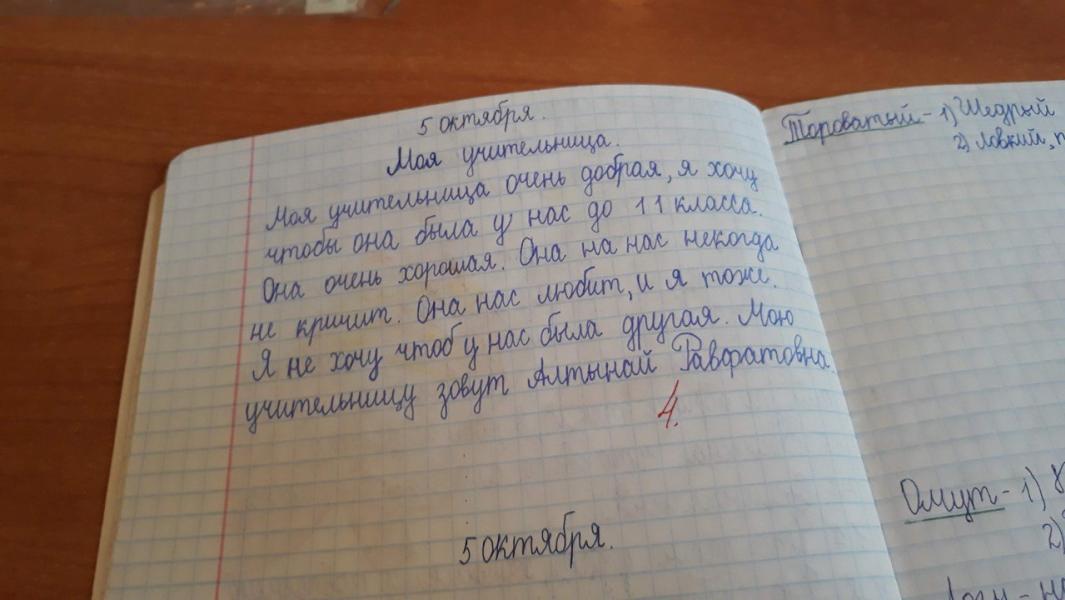 5 октября.
Моя учительница.
Моя учительница очень добрая, я хочу
чтобы она была у нас до 11 класса.
Она очень хорошая. Она на нас некогда
не кричит. Она нас любит, и я тоже.
Я не хочу чтоб у нас была другая. Мою
учительницу зовут Алтынай Равфатовна.
4.
5 октября.
Тороватый - 1) Щедрый
2) Ловкий,
Омут - 1)
2)